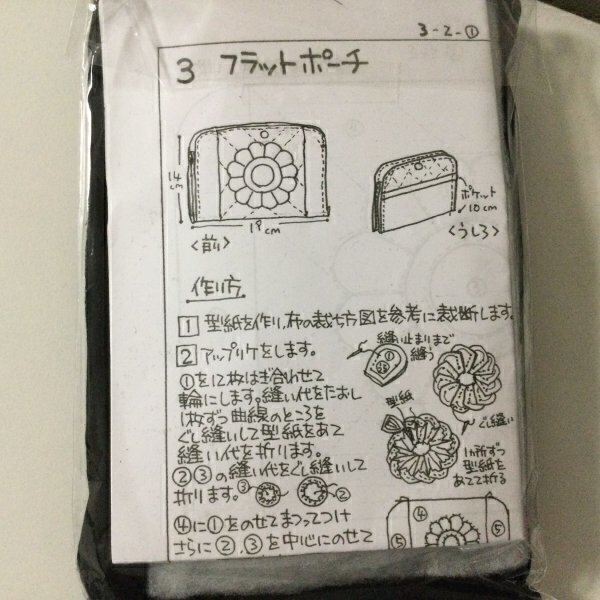 3-2-①
3 フラットポーチ
14cm
19cm
<前>
ポケット
10cm
<うしろ>
作り方
1 型紙を作り、布の裁ち方図を参考に裁断します。
2 アップリケをします。
①を12枚はぎ合わせて
輪にします。縫い代をたおし
1枚ずつ曲線のところを
ぐし縫いして型紙をあて
縫い代を折ります。
②③の縫い代をぐし縫いして
折ります。 ③ ②
④に①をのせてまつってつけ
さらに②,③を中心にのせて
縫い止まりまで
縫う
型紙
ぐし縫い
1ヵ所ずつ
型紙を
あてて折る
④
⑤ ⑤